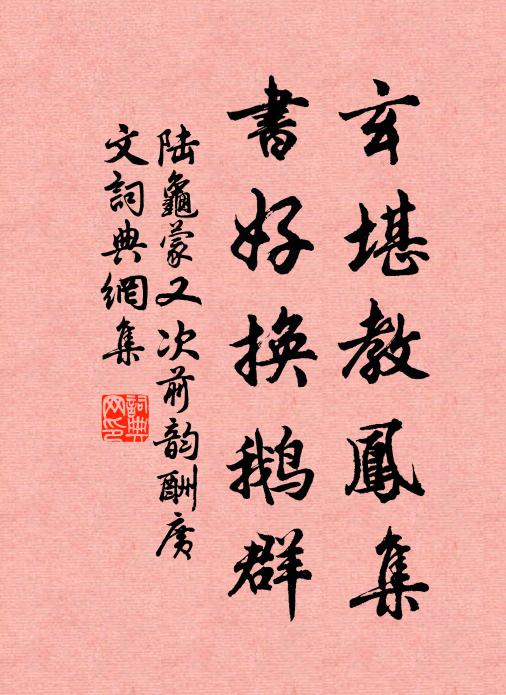 玄堪教鳳集
書好換鹅群
陆龜蒙又次前韵酬广
文詞典網集
詞典
网印